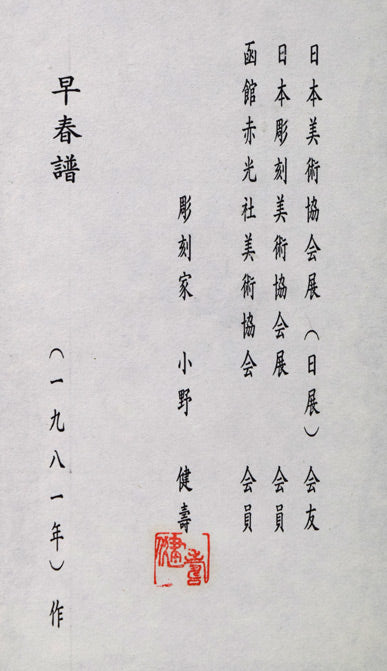 日本美術協会展（日展）会友
日本彫刻美術協会展　会員
函館赤光社美術協会　会員
彫刻家　小野　健壽
健壽
早春譜　（一九八一年）作